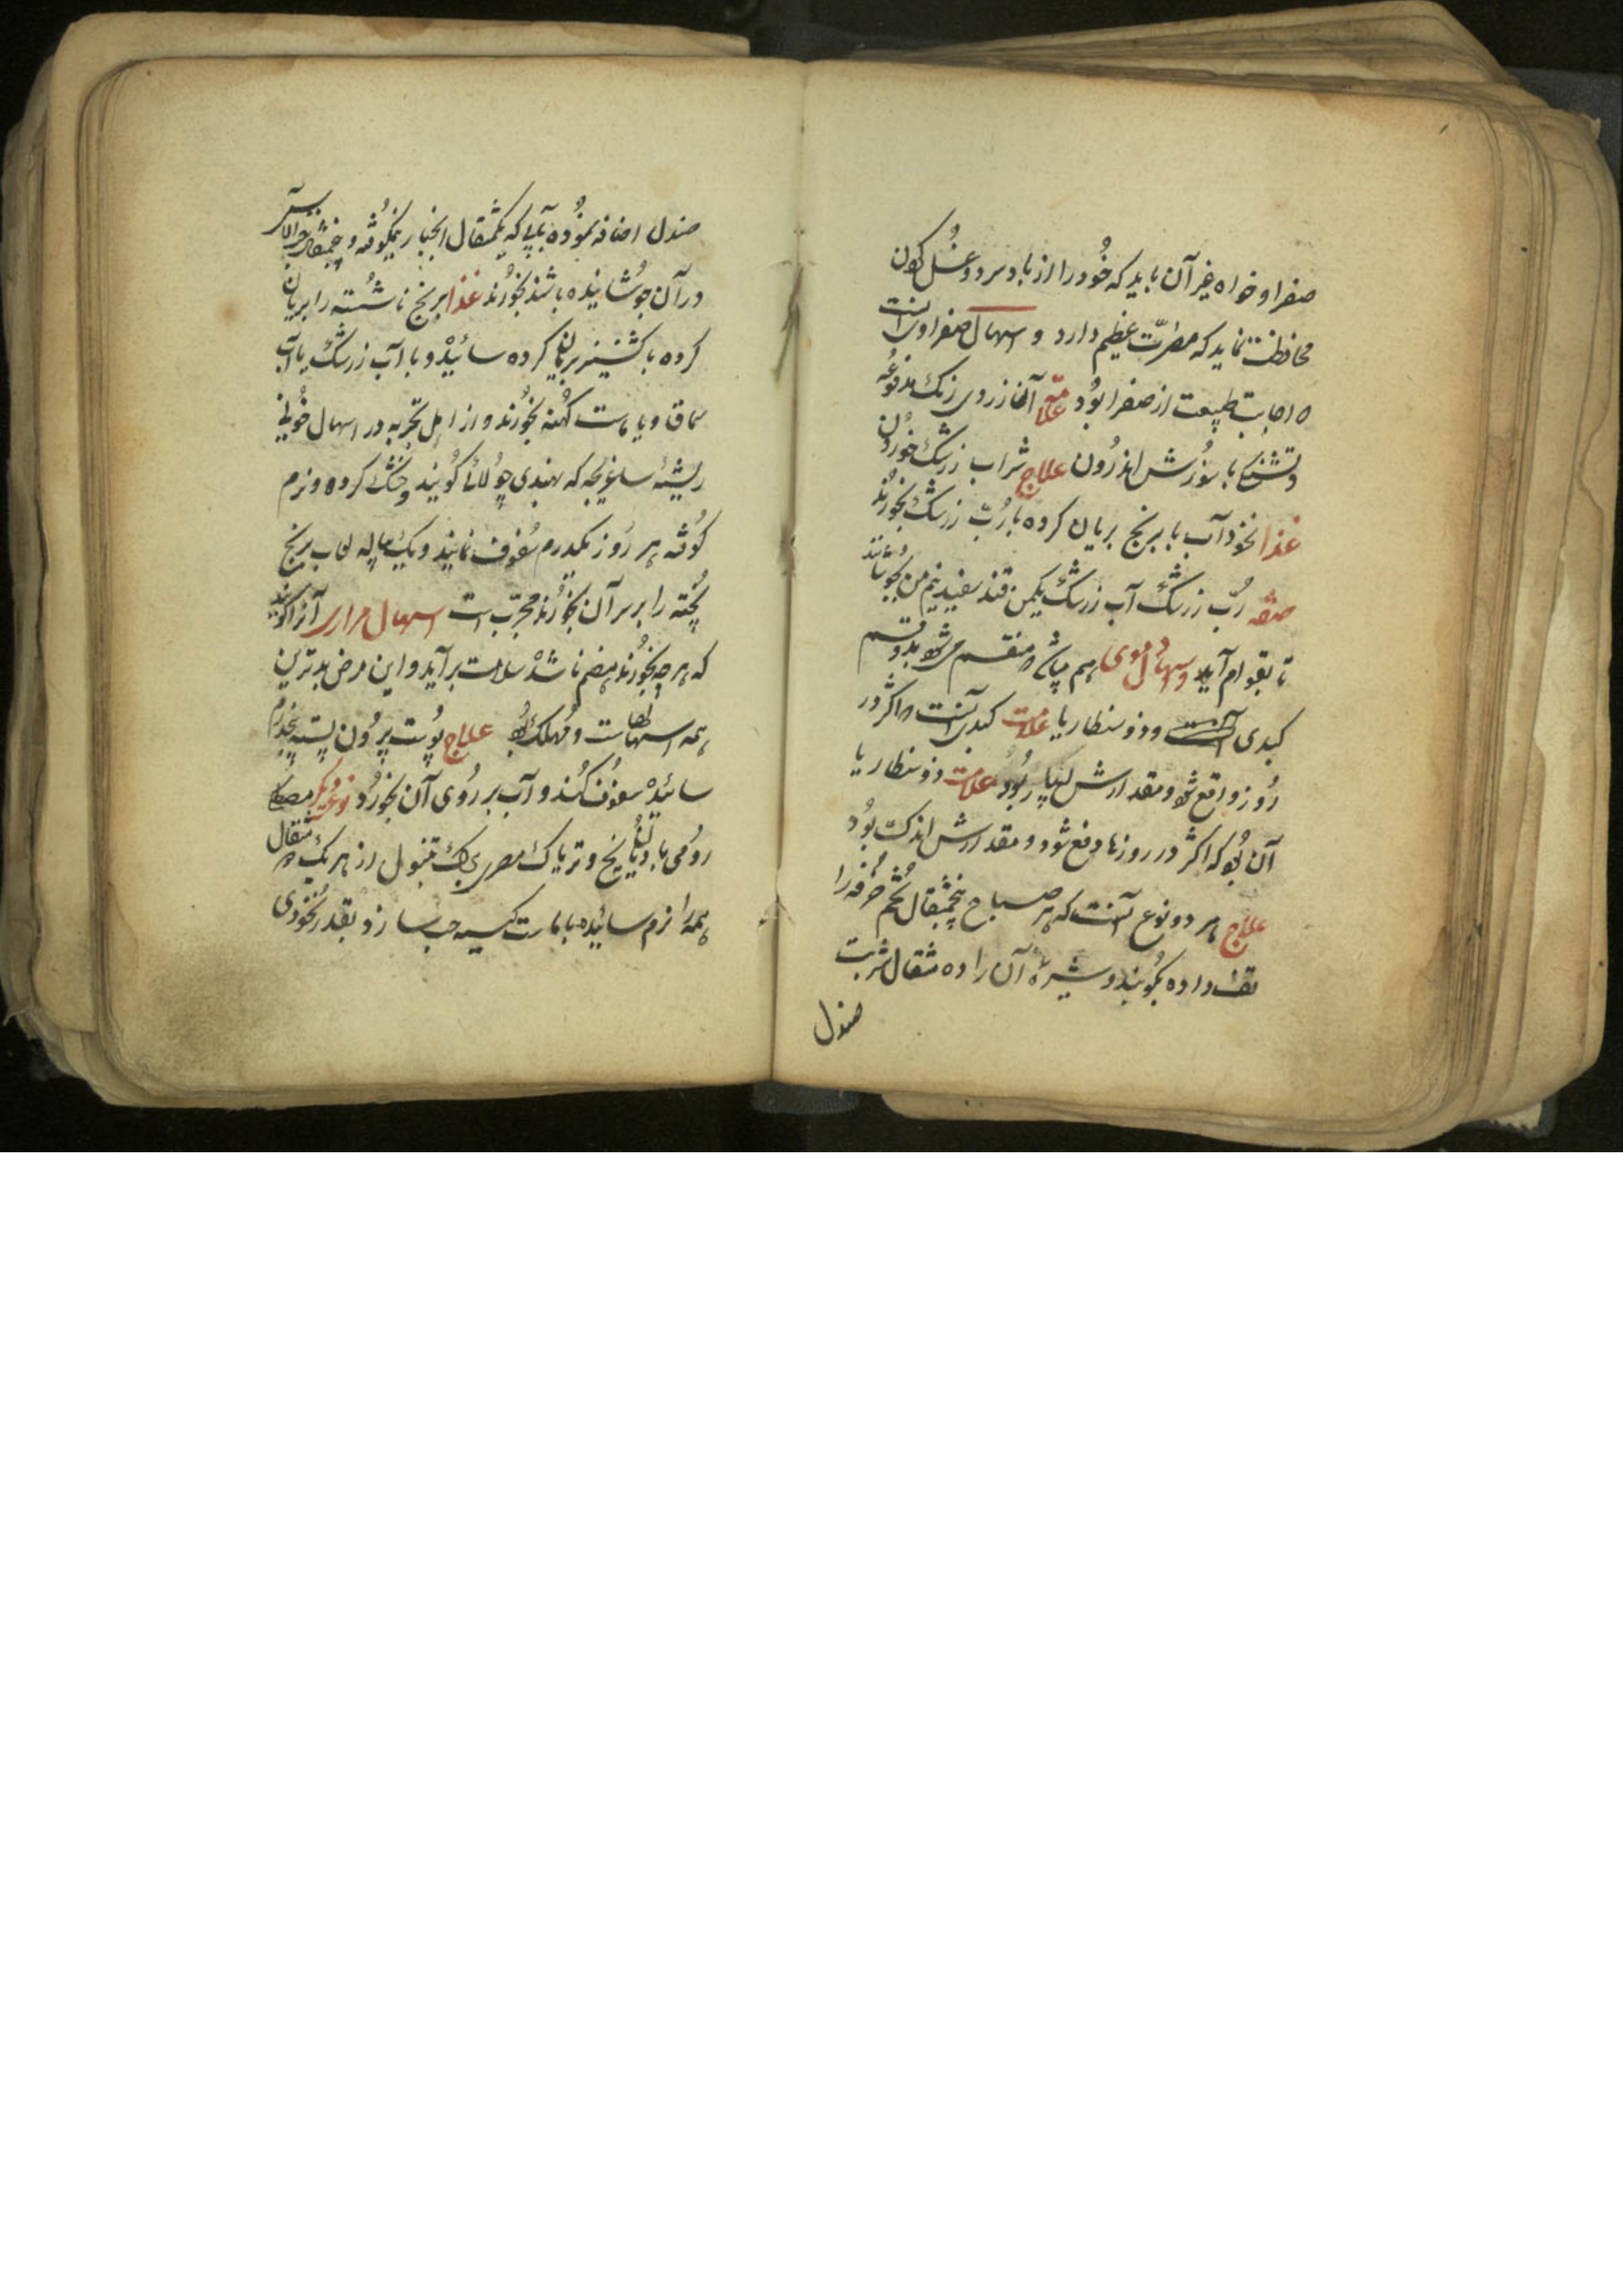 صفرا و خواه غیر آن باید که خود را از باد سرد و غسل کردن
محافظت نماید که مضرّت عظیم دارد و اسهال صفراوی آنست
که اجابت طبیعت از صفرا بود علامة آن زردی رنگ مدفوعه
و تشنگی با سوزش اندرون علاج شراب زرشک خوردن
غذا نخودآب با برنج بریان کرده با رُبّ زرشک بخورند
صفة رُبّ زرشک آب زرشک یکمن قند سفید نیم من بجوشانند
تا بقوام آید و اسهال دموی هم میباشد و منقسم میشود بدو قسم
کبدی و ذوسنطاریا علامت کبدی آنست که اکثر در
روز واقع شود و مقدارش بسیار بود علامت ذوسنطاریا
آن بود که اکثر در روزها دفع شود و مقدارش اندک بود
علاج هر دو نوع آنست که هر صباح پنجمثقال تخم خرفه را
تف داده بکوبند و شیرهٔ آن را ده مثقال شربت
صندل
صندل اضافه نموده بآبی که یکمثقال انجبار نیمکوفته و پنجمثقال حب الآس
در آن جوشانیده باشند بخورند غذا برنج ناشسته را بریان
کرده با کشنیز بریان کرده سائیده و با آب زرشک یا آب
سماق و یا ماست کهنه بخورند و از اهل تجربه در اسهال خونی
ریشهٔ که بهندی چولائی گویند خشک کرده و نرم
کوفته هر روز یکدرم سفوف نمایند و یک پیاله لعاب برنج
پخته را بر سر آن بخورند مجرّب است اسهال مراری آنرا گویند
که هر چه بخورند هضم ناشده سلامت برآید و این مرض بدترین
همه اسهالهاست و مهلک بود علاج پوست بیرون پسته پنجدرم
سائیده سفوف کند و آب بر روی آن بخورد نوع دیگر مصطکی
رومی بادیان و تریاک مصری برگ تنبول از هر یک مثقال
همه را نرم سائیده با ماست کیسه حب سازد بقدر نخودی